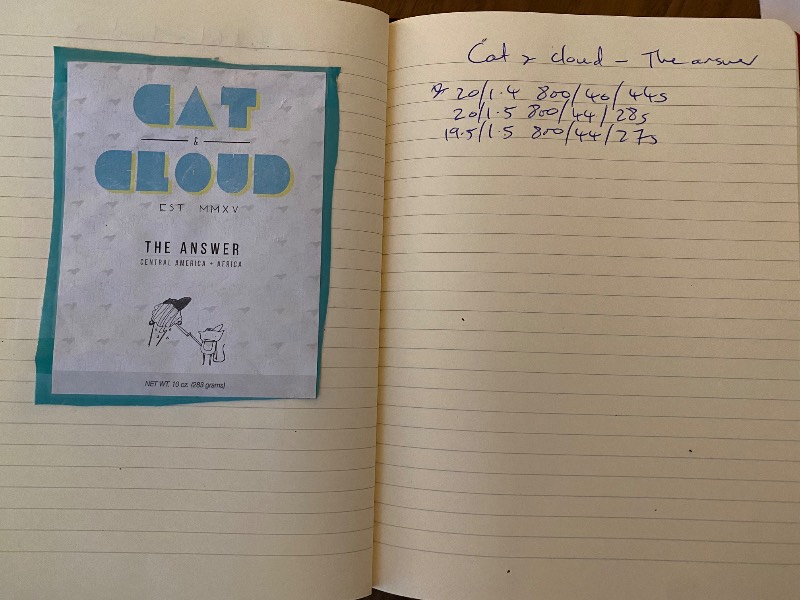 CAT
&
CLOUD
EST MMXV
THE ANSWER
CENTRAL AMERICA + AFRICA
NET WT. 10 oz. (283 grams)
Cat & cloud – The answer
20/1.4 800/40/44s
20/1.5 800/44/28s
19.5/1.5 800/44/27s